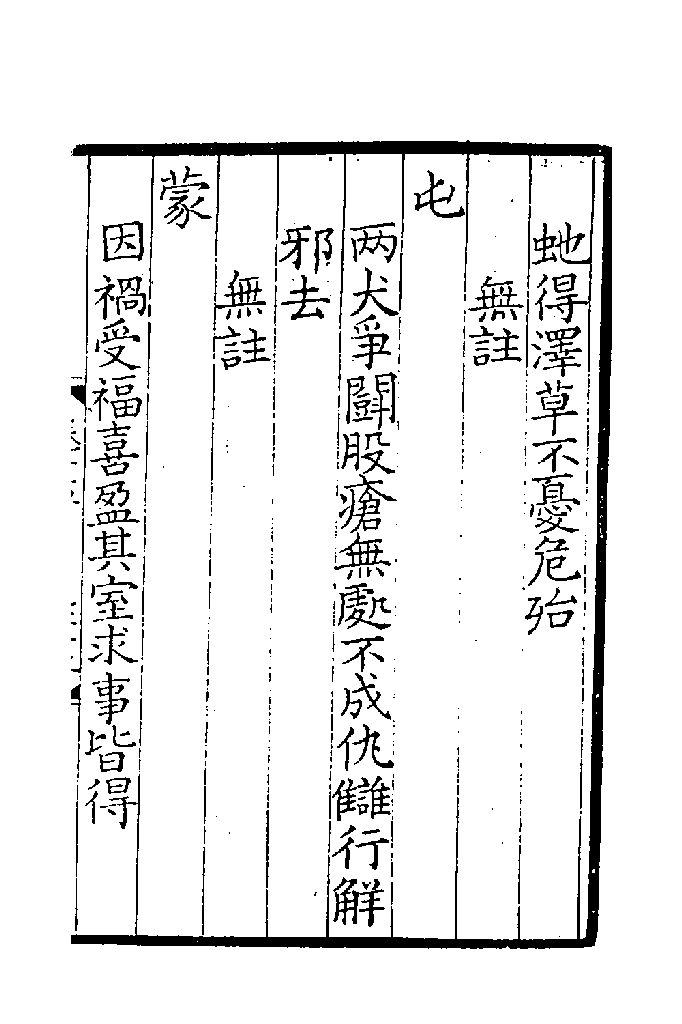 虵得澤草不憂危殆
無註
屯
两犬爭鬭股瘡無處不成仇讎行觧
邪去
無註
蒙
因禍受福喜盈其室求事皆得